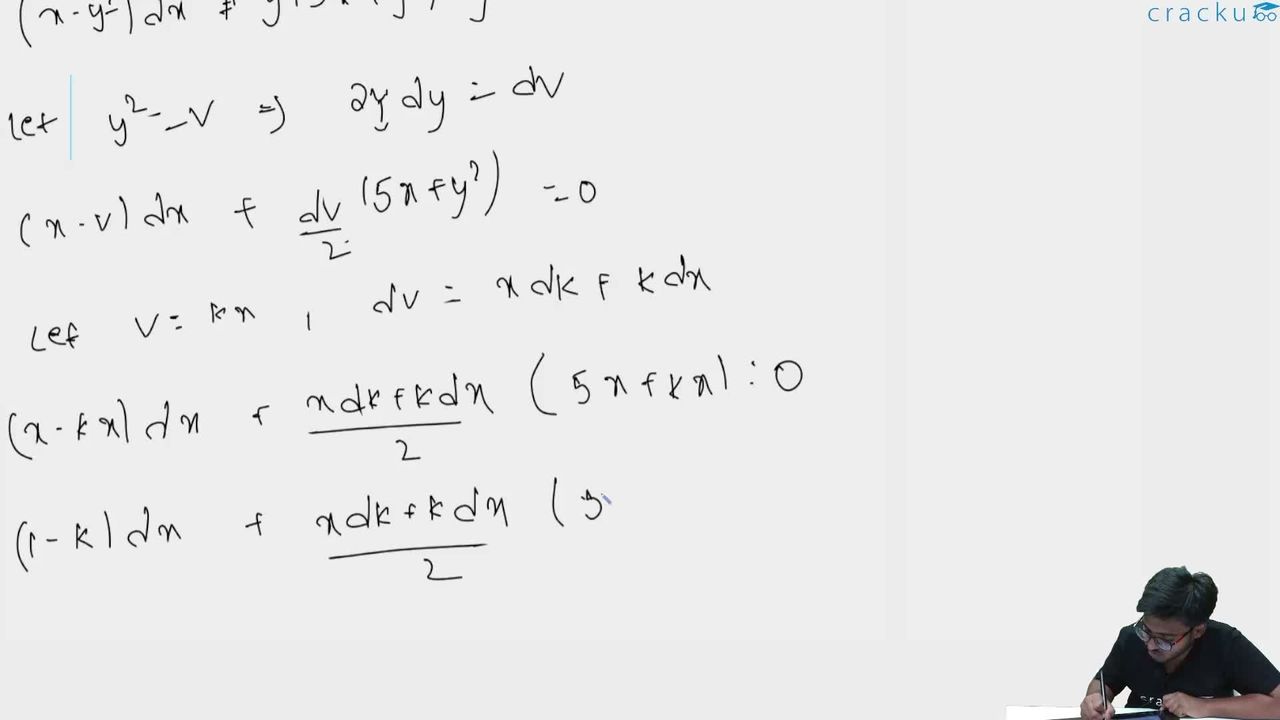 cracku
(x-y²) dx + y(5x+y²)
Let y² = v ⇒ 2y dy = dv
(x-v) dx + dv/2 (5x+y²) = 0
Let v = kx , dv = x dk + k dx
(x-kx) dx + (x dk + k dx)/2 (5x+kx) = 0
(1-k) dx + (x dk + k dx)/2 (5